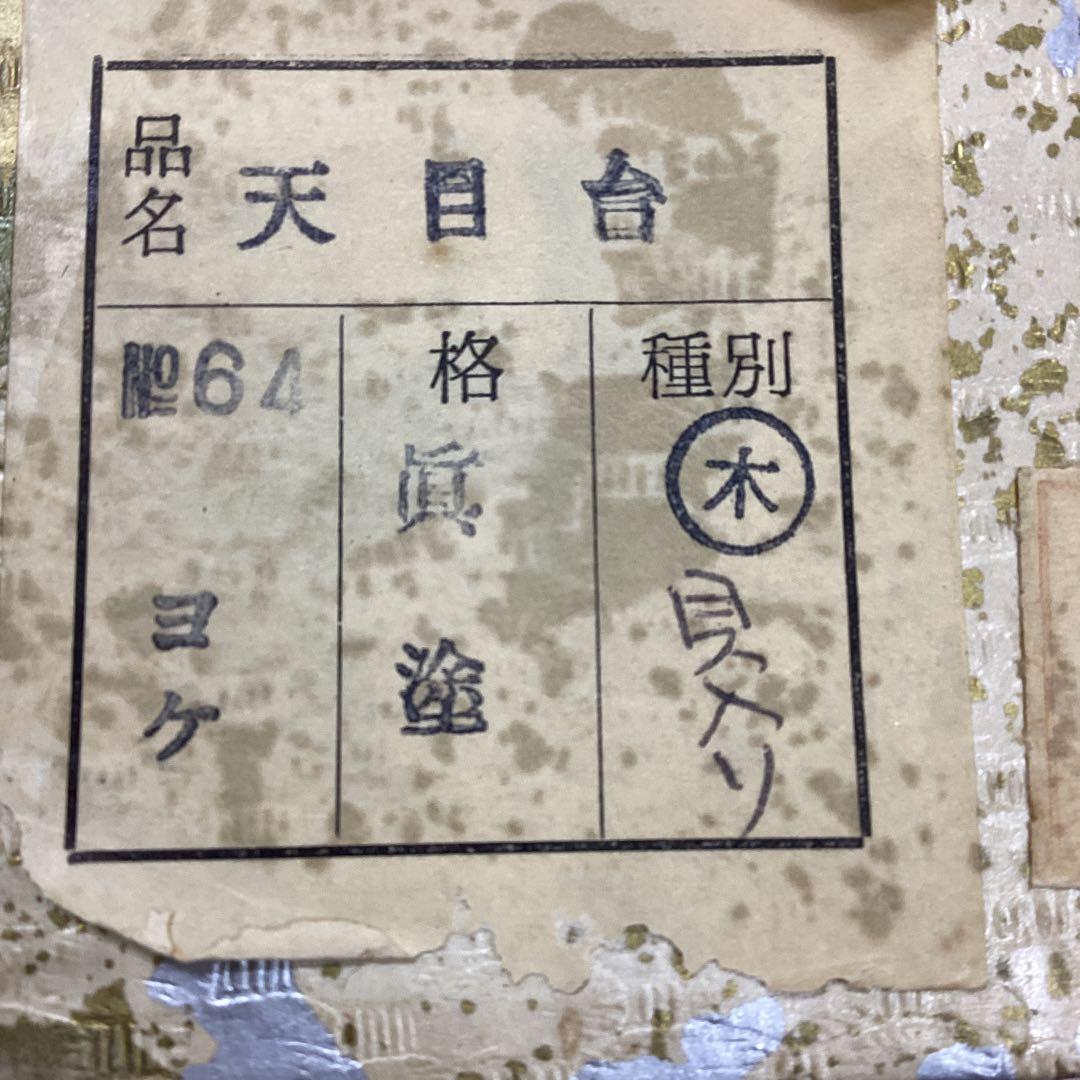 品名 天目台
種別
㊍
貝入り
格
眞塗
№64
ヨケ